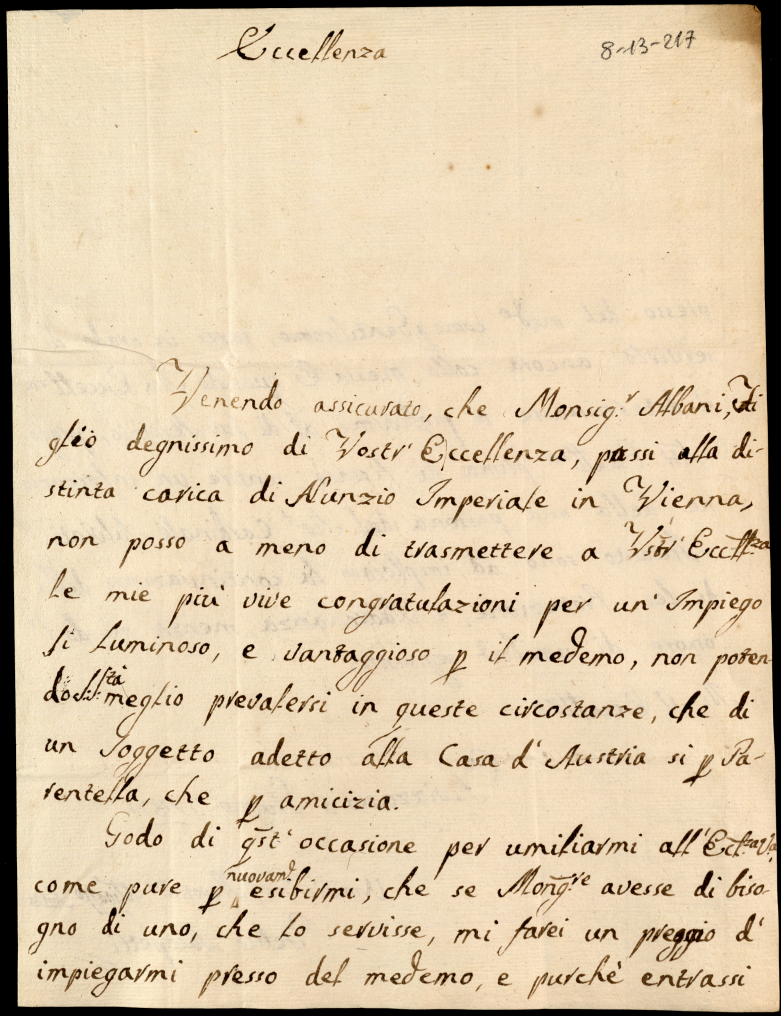 Eccellenza
8-13-217
Venendo assicurato, che Monsig.r Albani, Fi
glio degnissimo di Vostr' Eccellenza, passi alla di-
stinta carica di Nunzio Imperiale in Vienna,
non posso a meno di trasmettere a Vstr' Eccllza
le mie più vive congratulazioni per un' Impiego
sì luminoso, e vantaggioso p il medemo, non poten
do S. Stà meglio prevalersi in queste circostanze, che di
un Soggetto adetto alla Casa d' Austria si p Pa-
rentella, che p amicizia.
Godo di qst' occasione per umiliarmi all' Ecc.za Va,
come pure p nuovam.te esibirmi, che se Mongre avesse di biso
gno di uno, che lo servisse, mi farei un preggio d'
impiegarmi presso del medemo, e purchè entrassi